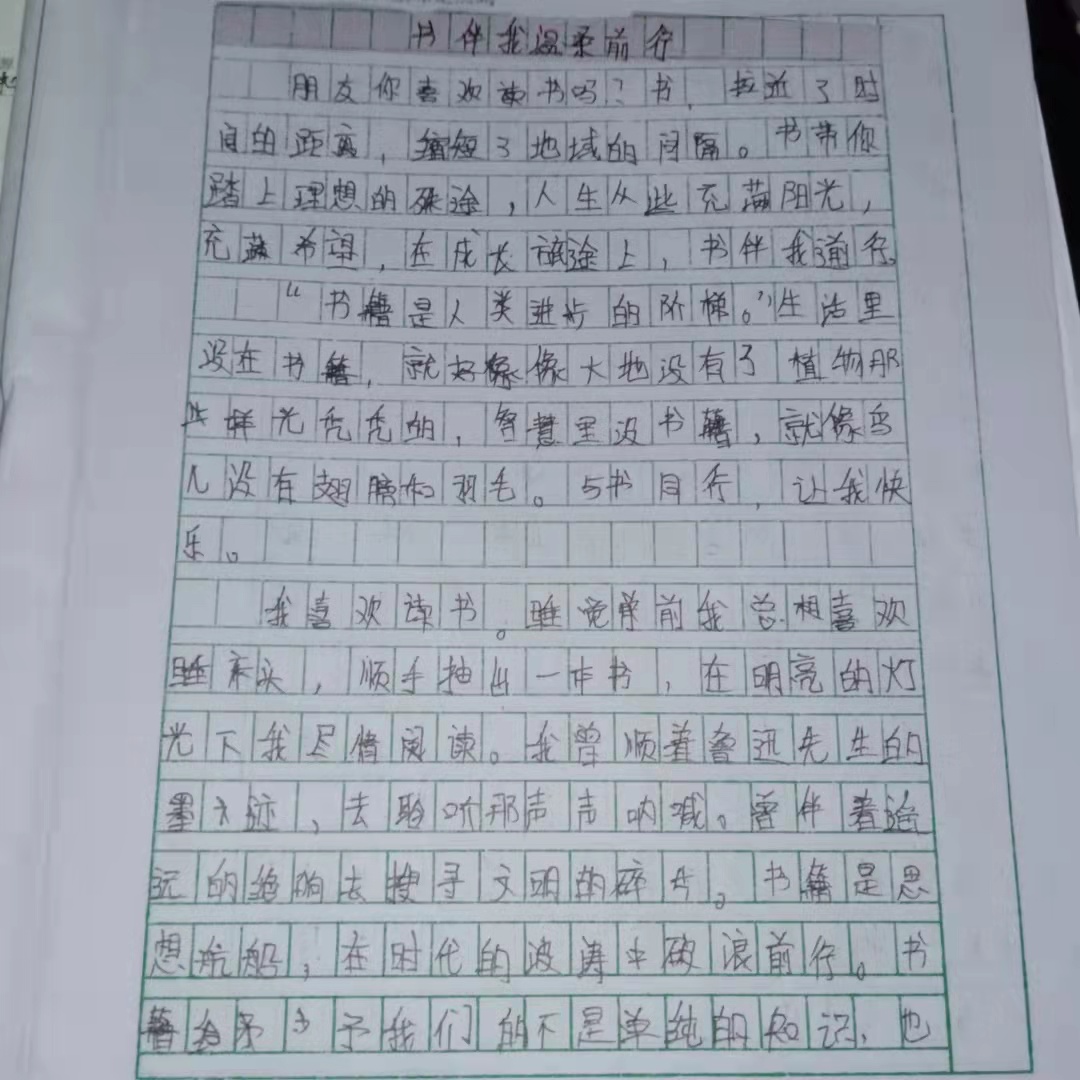 书伴我温柔前行
朋友你喜欢读书吗？书，拉近了时
间的距离，缩短了地域的间隔。书带你
踏上理想的殊途，人生从此充满阳光，
充满希望，在成长旅途上，书伴我前行。
“书籍是人类进步的阶梯。”生活里
没在书籍，就好像像大地没有了植物那
样光秃秃的，智慧里没书籍，就像鸟
儿没有翅膀和羽毛。与书同行，让我快
乐。
我喜欢读书。睡觉前我总相喜欢
睡床头，顺手抽出一本书，在明亮的灯
光下我尽情阅读。我曾顺着鲁迅先生的
墨迹，去聆听那声声呐喊。曾伴着
远的绝响去搜寻文明的碎片。书籍是思
想航船，在时代的波涛中破浪前行。书
籍给予我们的不是单纯的知识，也